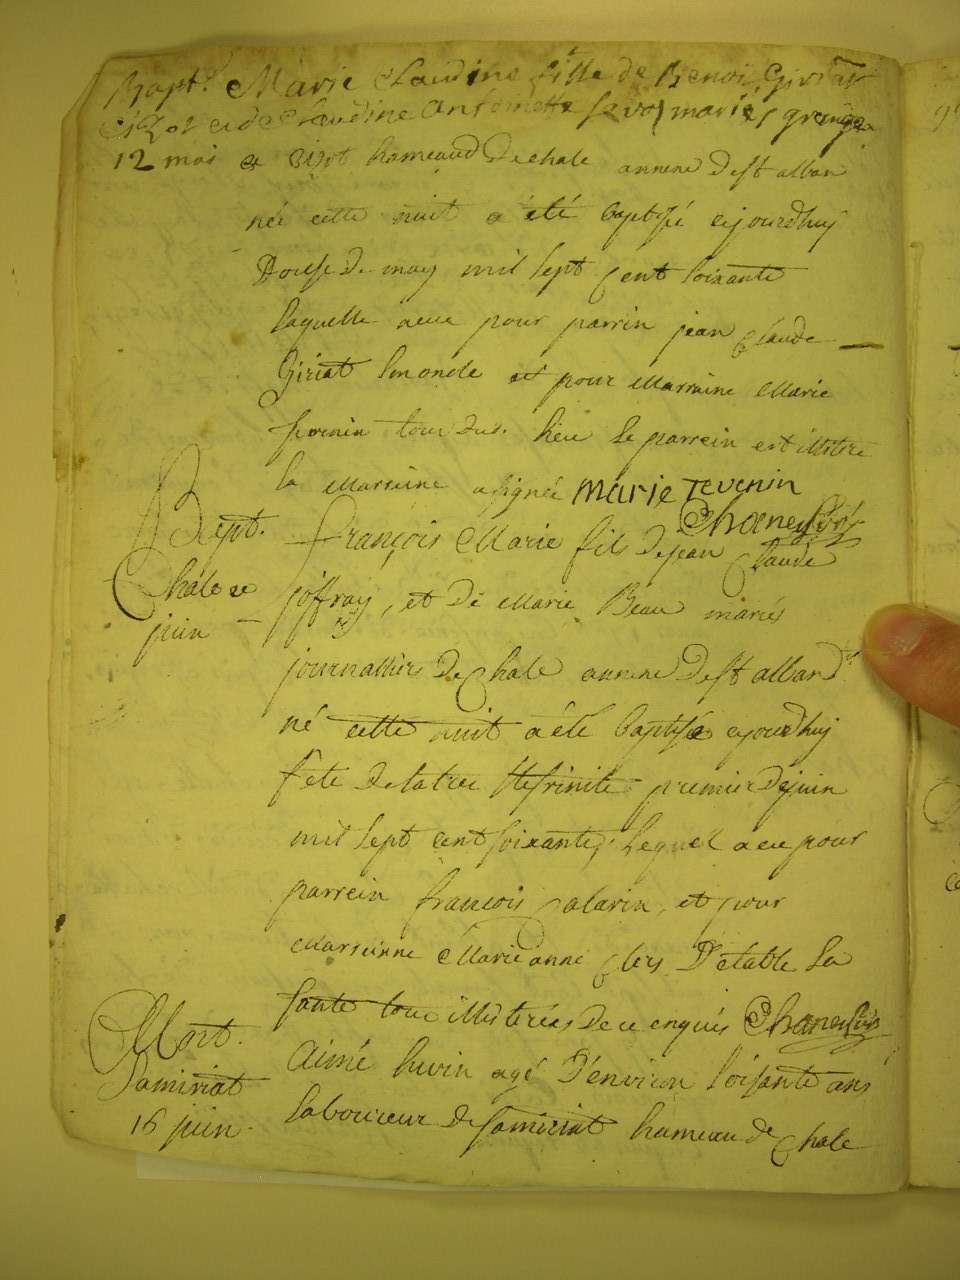 Bapt. Marie Claudine fille de Benoi Giriat
et de Claudine Antoinette mariés
12 mai a hameaud De chale annexe De st alban
née cette nuit a été Baptisé ajourdhuy
Douse De may mil sept cent soixante
laquelle a eue pour parrin jean Claude
Giriat son oncle et pour Marraine Marie
tous dud. lieu le parrein est illitéré
la Marraine a signée marie Tevenin
Bapt. François Marie fils De jean Claude
Chale joffray, et De Marie Beau mariés
juin journalliers De Chale annexe De st alban
né cette nuit a été baptisé ajourdhuy
fete De la tres ste trinité premier De juin
mil sept cent soixante, lequel a eue pour
parrein françois alarin, et pour
Marreinne Marie anne D'étable sa
tante tous illiterées De ce enquis
Mort. Aimé agé D'environ soisante ans
Samiriat laboureur De Samiriat hameau de Chale
16 juin